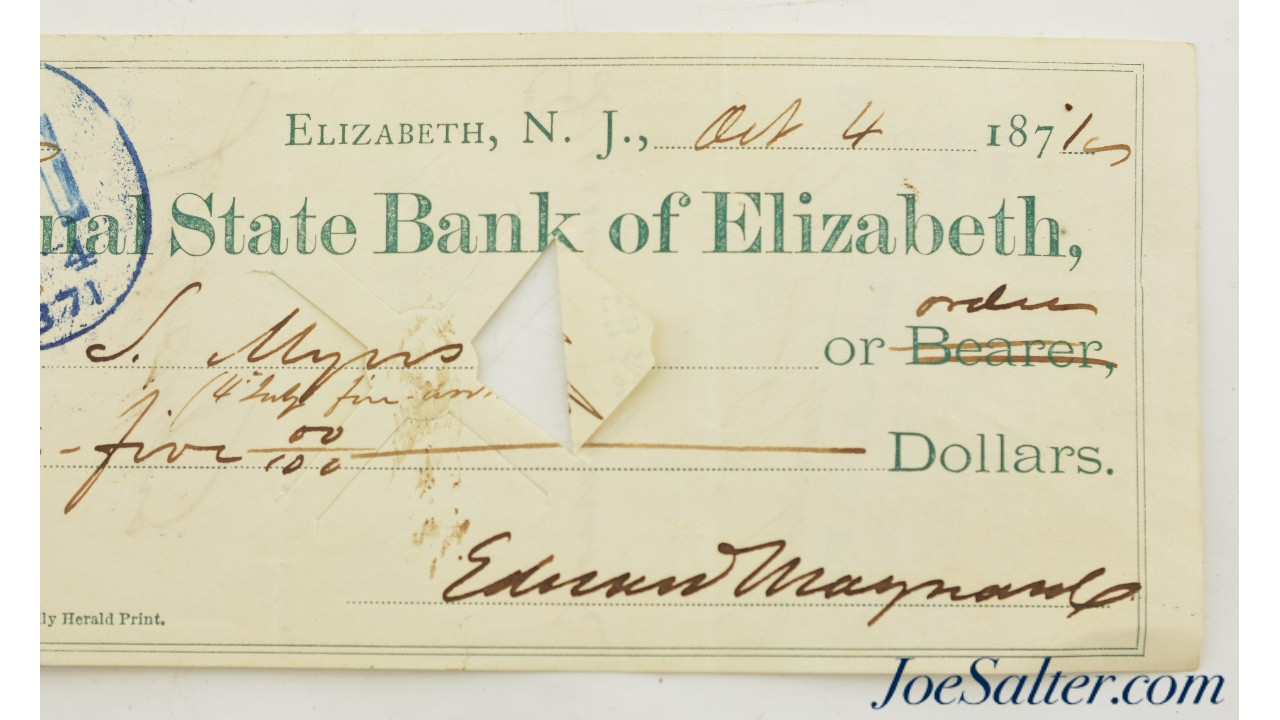 ELIZABETH, N. J., Oct 4 1871
nal State Bank of Elizabeth,
4
871
order
S. Myers or Bearer,
five 00/100 Dollars.
Edward Maynard
ly Herald Print.
JoeSalter.com